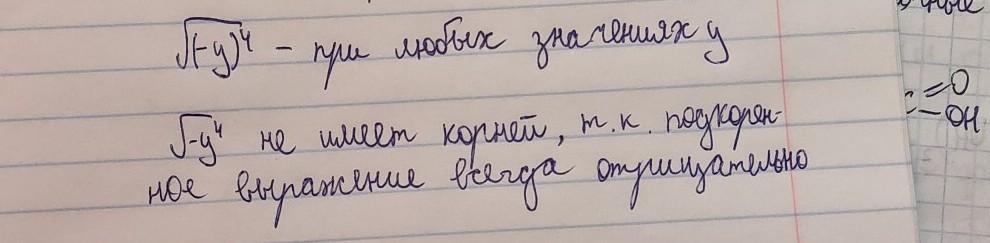 √(-y)⁴ - при любых значениях y
√-y⁴ не имеет корней, т.к. подкорен-
ное выражение всегда отрицательно
=O
-OH